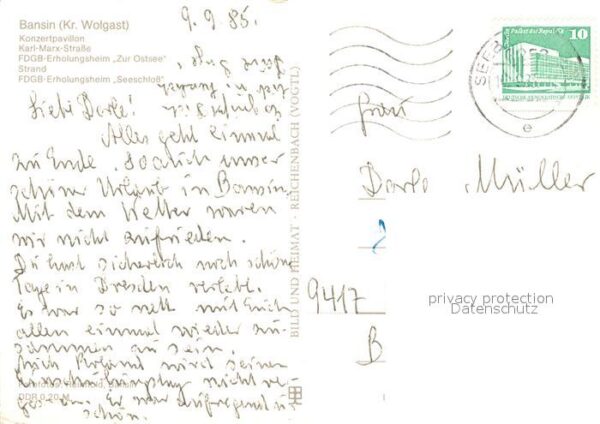 Bansin (Kr. Wolgast)
Konzertpavillon
Karl-Marx-Straße
FDGB-Erholungsheim „Zur Ostsee"
Strand
FDGB-Erholungsheim „Seeschloß"
9.9.85.
Liebe Dorle!
Alles geht einmal
zu Ende, so auch unser
schöner Urlaub in Bansin.
Mit dem Wetter waren
wir nicht zufrieden.
Du hast sicherlich noch schöne
Tage in Dresden verlebt.
Es war so nett mit Euch
allen einmal wieder zu-
sammen zu sein.
Auch Roland wird seinen
nicht ver-
gessen. Er war aufregend u.
schön.
DDR 0,20 M
BILD UND HEIMAT · REICHENBACH (VOGTL)
Palast der Republik
10
Frau
Dorle Müller
9417
B
privacy protection
Datenschutz